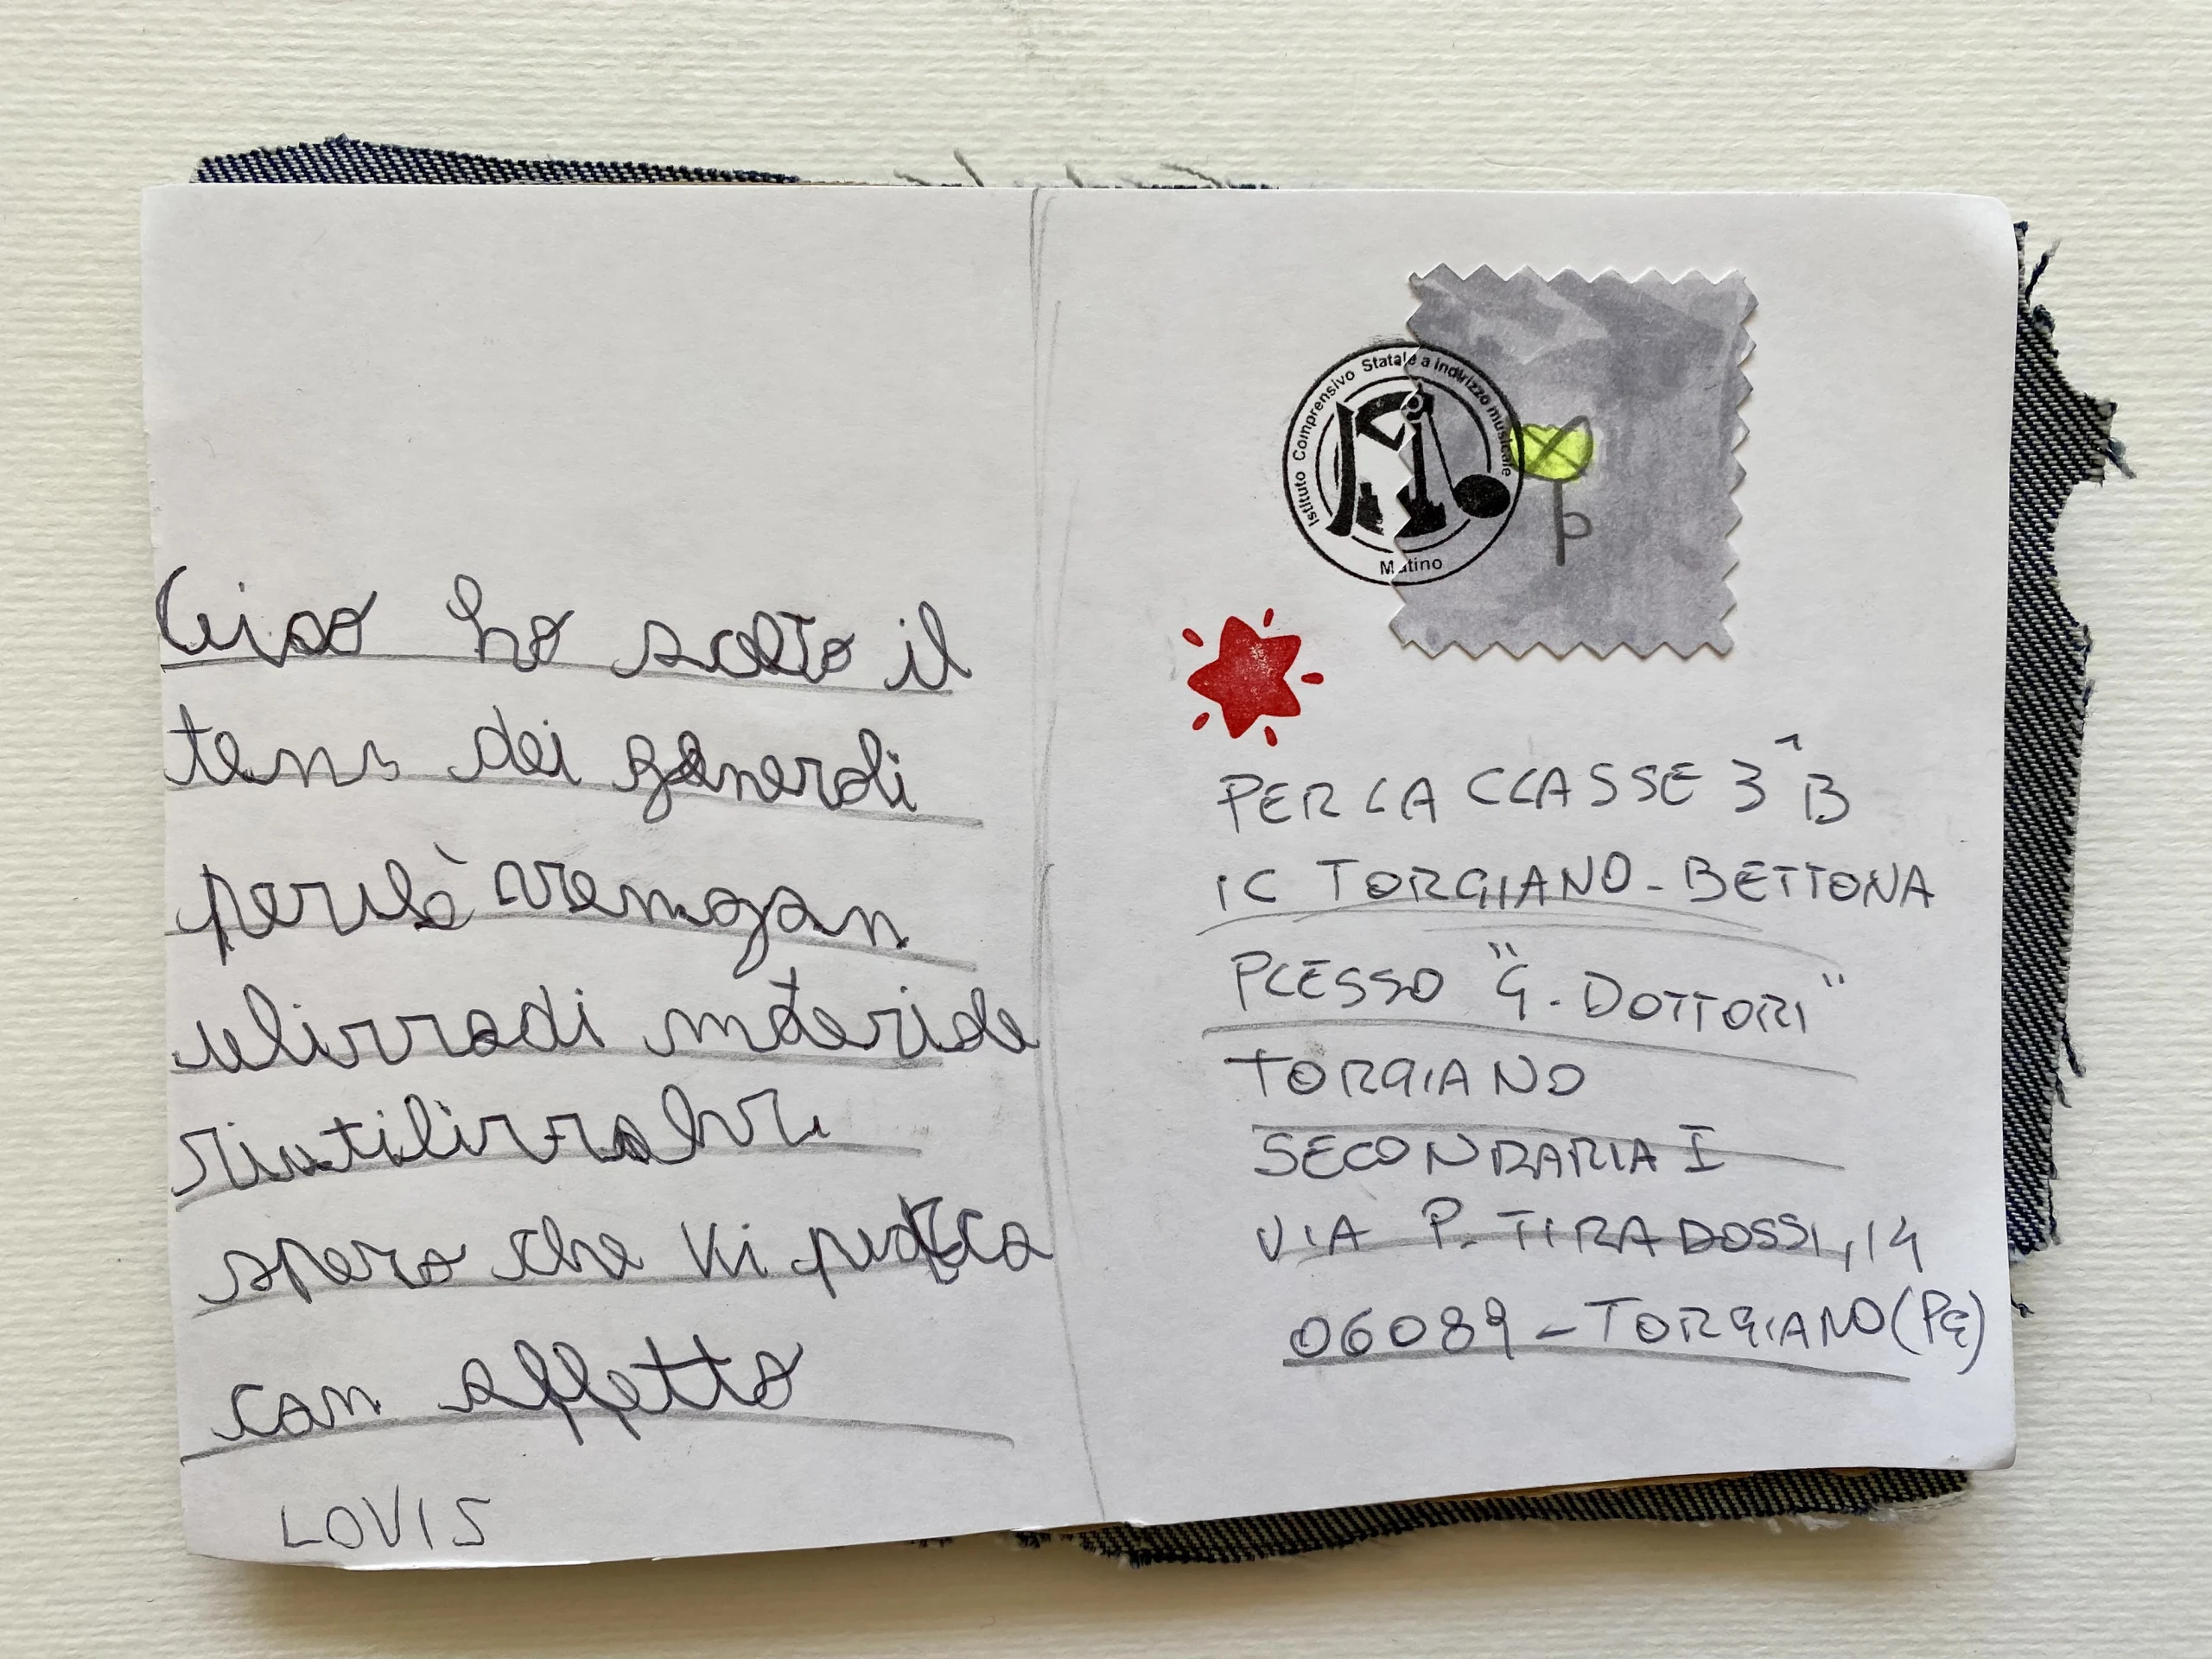 Ciao ho scelto il
tema dei generali
perchè vengan
di materiale
spero che vi piaccia
con affetto
LOVIS
Istituto Comprensivo Statale a indirizzo musicale
Matino
PER LA CLASSE 3^B
IC TORGIANO-BETTONA
PLESSO "G. DOTTORI"
TORGIANO
SECONDARIA I
VIA P. TIRADOSSI, 14
06089-TORGIANO (PG)